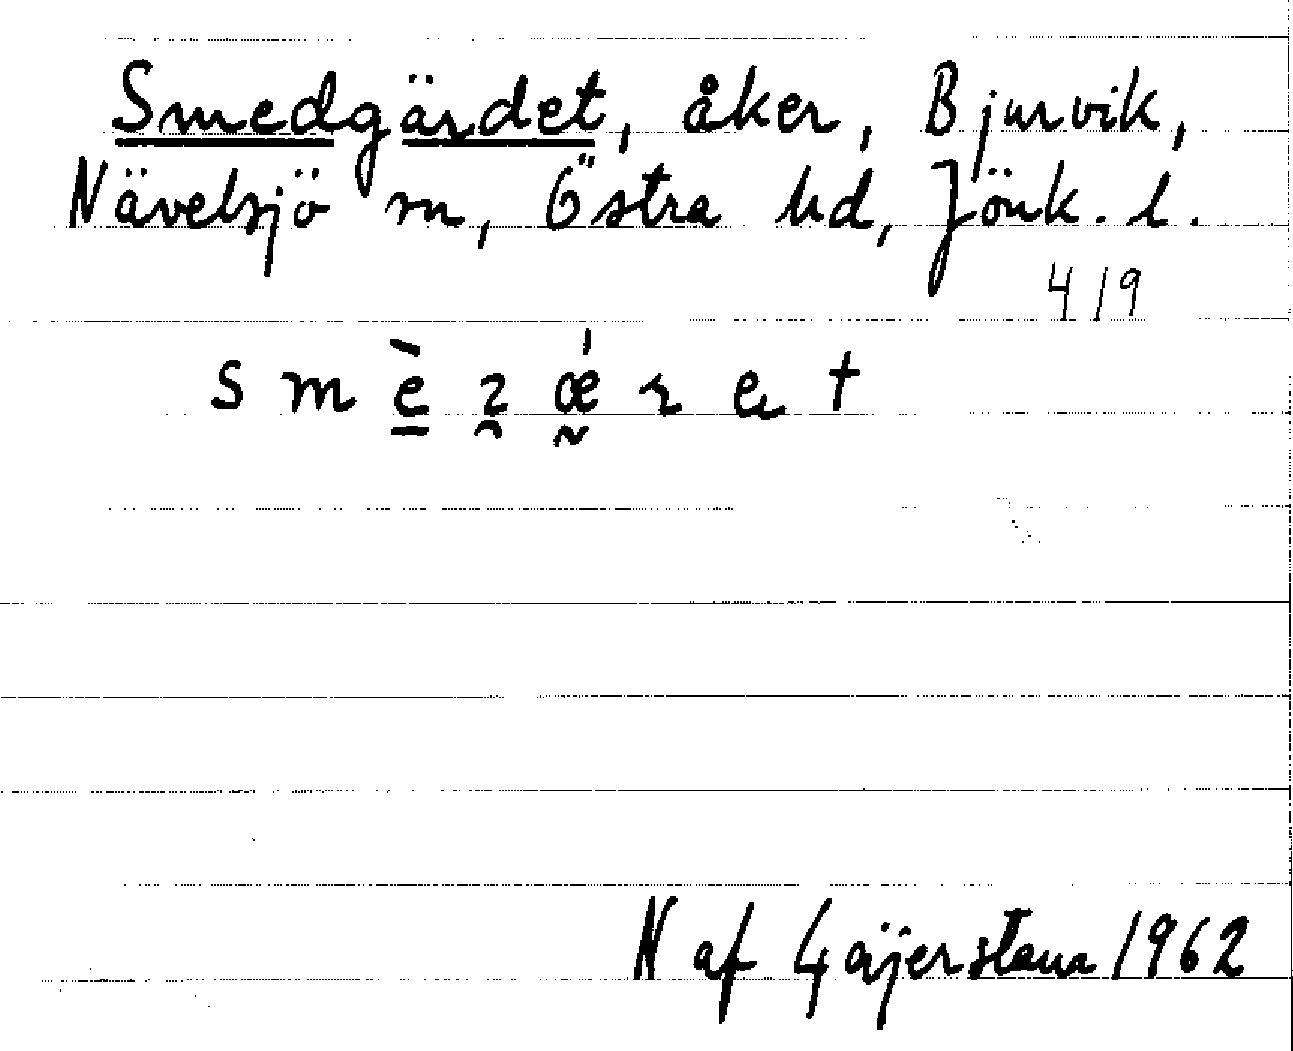 Smedgärdet, åker, Bjurvik,
Nävelsjö sn, Östra hd, Jönk. l.
419
N af Geijerstam 1962